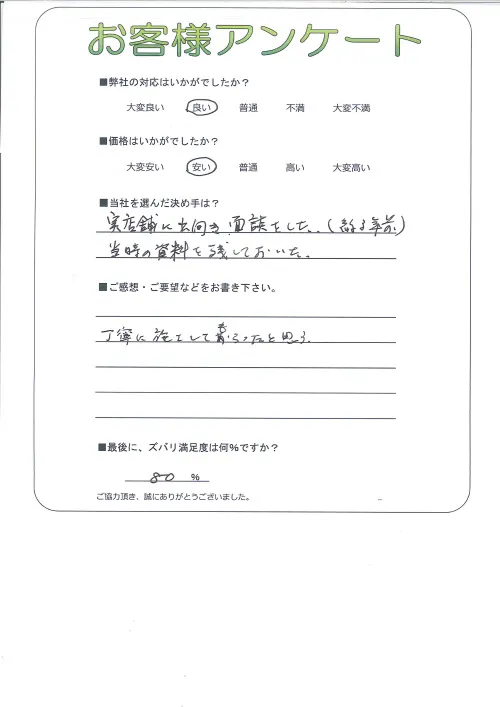 お客様アンケート
■弊社の対応はいかがでしたか？
大変良い 良い 普通 不満 大変不満
■価格はいかがでしたか？
大変安い 安い 普通 高い 大変高い
■当社を選んだ決め手は？
実店舗に出向き面談をした。(約3年前)
当時の資料を残しておいた。
■ご感想・ご要望などをお書き下さい。
丁寧に施工して貰ったと思う。
■最後に、ズバリ満足度は何％ですか？
80 ％
ご協力頂き、誠にありがとうございました。